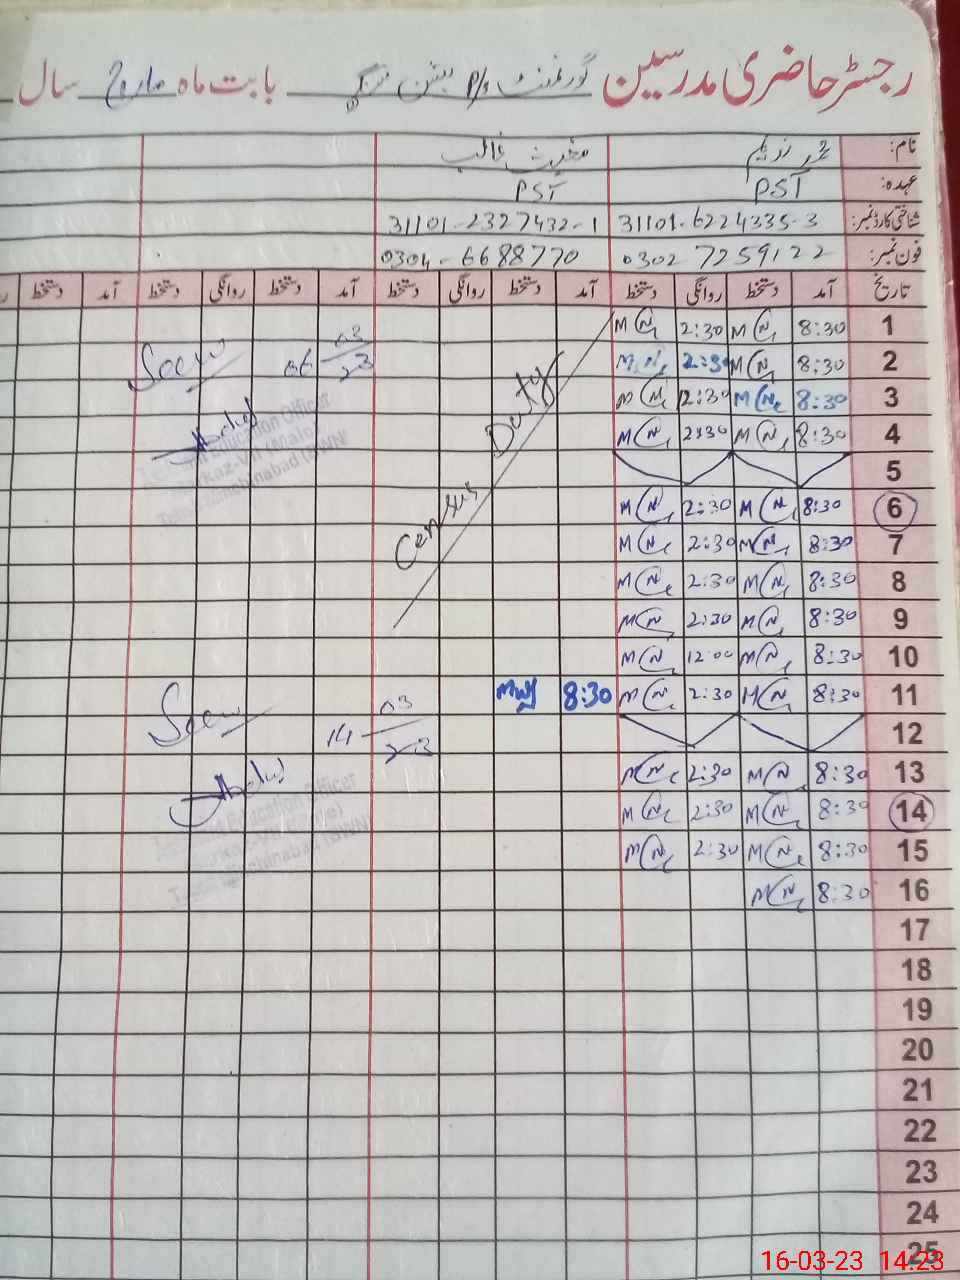 رجسٹر حاضری مدرسین گورنمنٹ P/S بابت ماہ مارچ سال
نام: محمد ندیم مغیث غالب
عہدہ: PST PST
شناختی کارڈ نمبر: 31101-6224335-3 31101-2327432-1
فون نمبر: 0302 7259122 0304-6688770
تاریخ آمد دستخط روانگی دستخط آمد دستخط روانگی دستخط آمد دستخط روانگی دستخط آمد دستخط
1 8:30 MN 2:30 MN
2 8:30 MN 2:30 MN
3 8:30 MN 2:30 MN
4 8:30 MN 2:30 MN
5
6 8:30 MN 2:30 MN
7 8:30 MN 2:30 MN
8 8:30 MN 2:30 MN
9 8:30 MN 2:30 MN
10 8:30 MN 12:00 MN
11 8:30 MN 2:30 MN 8:30
12
13 8:30 MN 2:30 MN
14 8:30 MN 2:30 MN
15 8:30 MN 2:30 MN
16 8:30 MN
17
18
19
20
21
22
23
24
25
Census Duty
Seen 06 03/23
Education Officer
Markaz-VII (Male)
Seen 14 03/23
Education Officer
16-03-23 14:23